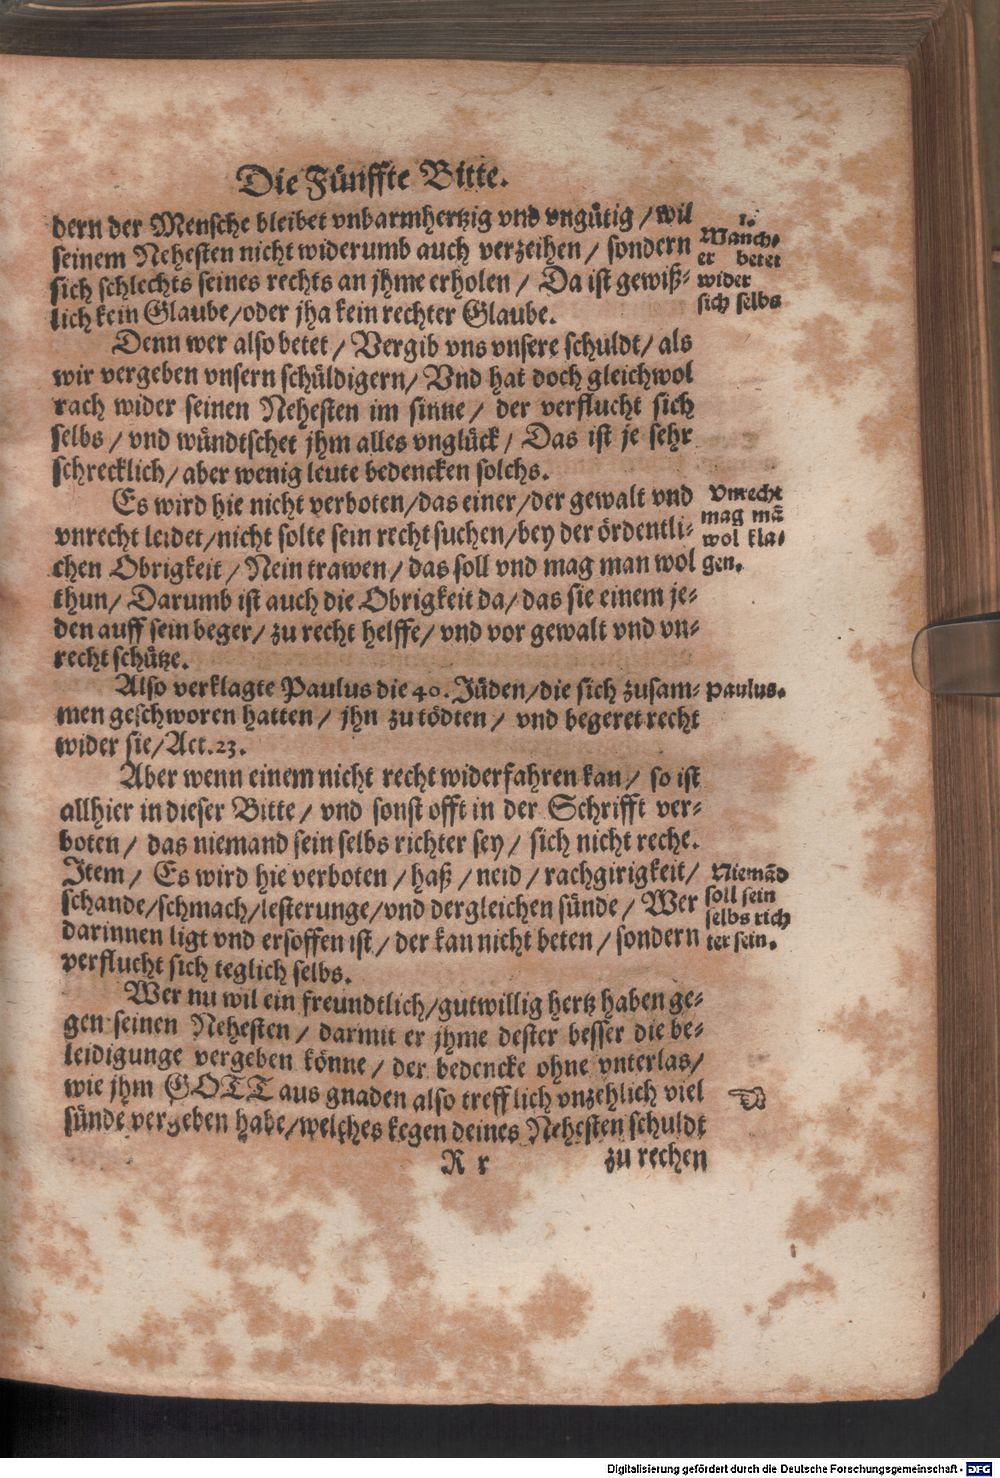 Die Fünffte Bitte.
dern der Mensche bleibet vnbarmhertzig vnd vngütig / wil
seinem Nehesten nicht widerumb auch verzeihen / sondern
sich schlechts seines rechts an jhme erholen / Da ist gewiß-
lich kein Glaube/oder jha kein rechter Glaube.
1.
Manch-
er betet
wider
sich selbs
Denn wer also betet / Vergib vns vnsere schuldt/ als
wir vergeben vnsern schüldigern/ Vnd hat doch gleichwol
rach wider seinen Nehesten im sinne / der verflucht sich
selbs / vnd wündtschet jhm alles vnglück / Das ist je sehr
schrecklich/ aber wenig leute bedencken solchs.
Es wird hie nicht verboten/das einer/der gewalt vnd
vnrecht leidet/nicht solte sein recht suchen/bey der ördentli-
chen Obrigkeit / Nein trawen / das soll vnd mag man wol
thun/ Darumb ist auch die Obrigkeit da/ das sie einem je-
den auff sein beger/ zu recht helffe/ vnd vor gewalt vnd vn-
recht schütze.
Vnrecht
mag mã
wol kla-
gen.
Also verklagte Paulus die 40. Jüden/die sich zusam-
men geschworen hatten / jhn zu tödten / vnd begeret recht
wider sie/Act.23.
Paulus.
Aber wenn einem nicht recht widerfahren kan / so ist
allhier in dieser Bitte / vnd sonst offt in der Schrifft ver-
boten / das niemand sein selbs richter sey / sich nicht reche.
Item / Es wird hie verboten / haß / neid / rachgirigkeit/
schande/schmach/lesterunge/vnd dergleichen sünde / Wer
darinnen ligt vnd ersoffen ist / der kan nicht beten / sondern
verflucht sich teglich selbs.
Niemãd
soll sein
selbs rich
ter sein.
Wer nu wil ein freundtlich/gutwillig hertz haben ge-
gen seinen Nehesten / darmit er jhme dester besser die be-
leidigunge vergeben könne / der bedencke ohne vnterlas/
wie jhm GOTT aus gnaden also trefflich vnzehlich viel
sünde vergeben habe/welches kegen deines Nehesten schuldt
R r
zu rechen
Digitalisierung gefördert durch die Deutsche Forschungsgemeinschaft - DFG